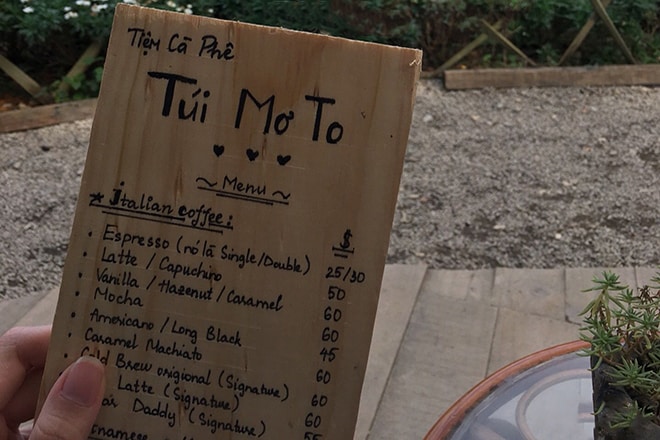 Tiệm Cà Phê
Túi Mơ To
~ Menu ~
* Italian coffee: $
• Espresso (nó là Single/Double) 25/30
• Latte / Capuchino 50
• Vanilla / Hazenut / Caramel 60
• Mocha 60
• Americano / Long Black 45
• Caramel Machiato 60
Cold Brew origional (Signature) 60
Latte (Signature) 60
Daddy (Signature) 55